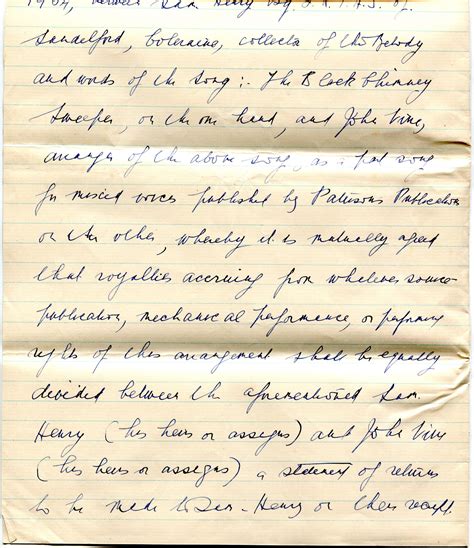 between Sam Henry Esq. of
Sandelford, Coleraine, collector of the Melody
and words of the song :- The Black Chimney
Sweeper, on the one hand, and John Vine,
arranger of the above song, as a part song
for mixed voices published by Patersons Publications
on the other, whereby it is mutually agreed
that royalties accruing from whatever source
publication, mechanical performance, or performing
rights of this arrangement shall be equally
divided between the aforementioned Sam
Henry (his heirs or assigns) and John Vine
(his heirs or assigns) a statement of returns
to be made to Sam Henry or their